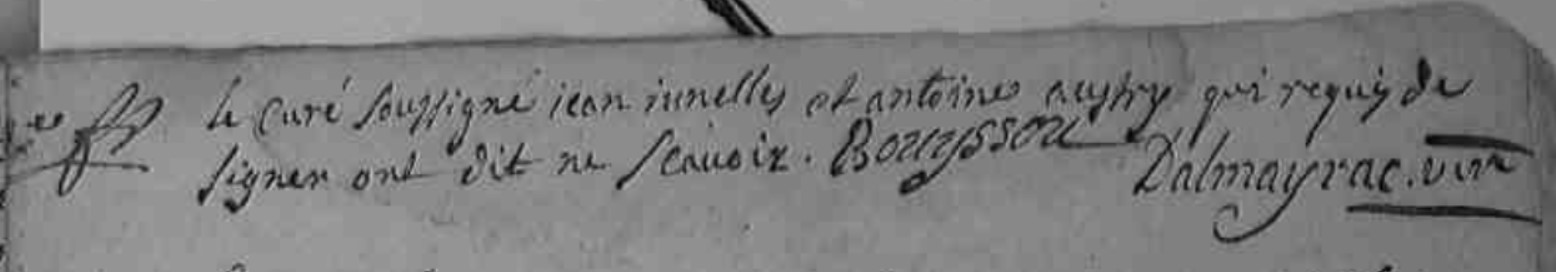 le curé soussigné iean iunelles et antoine austry qui requis de
signer ont dit ne scauoir. Bouyssou Dalmayrac. vire